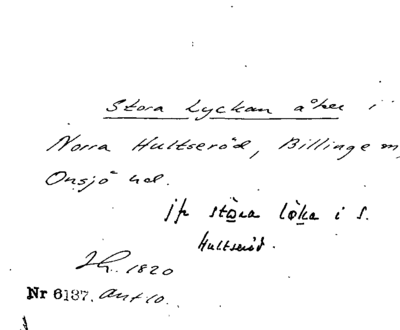 Stora Lyckan åker i
Norra Hultseröd, Billinge
Onsjö hd.
jfr störa løka i S.
Hultseröd.
1820
Nr 6137. Ant 10.